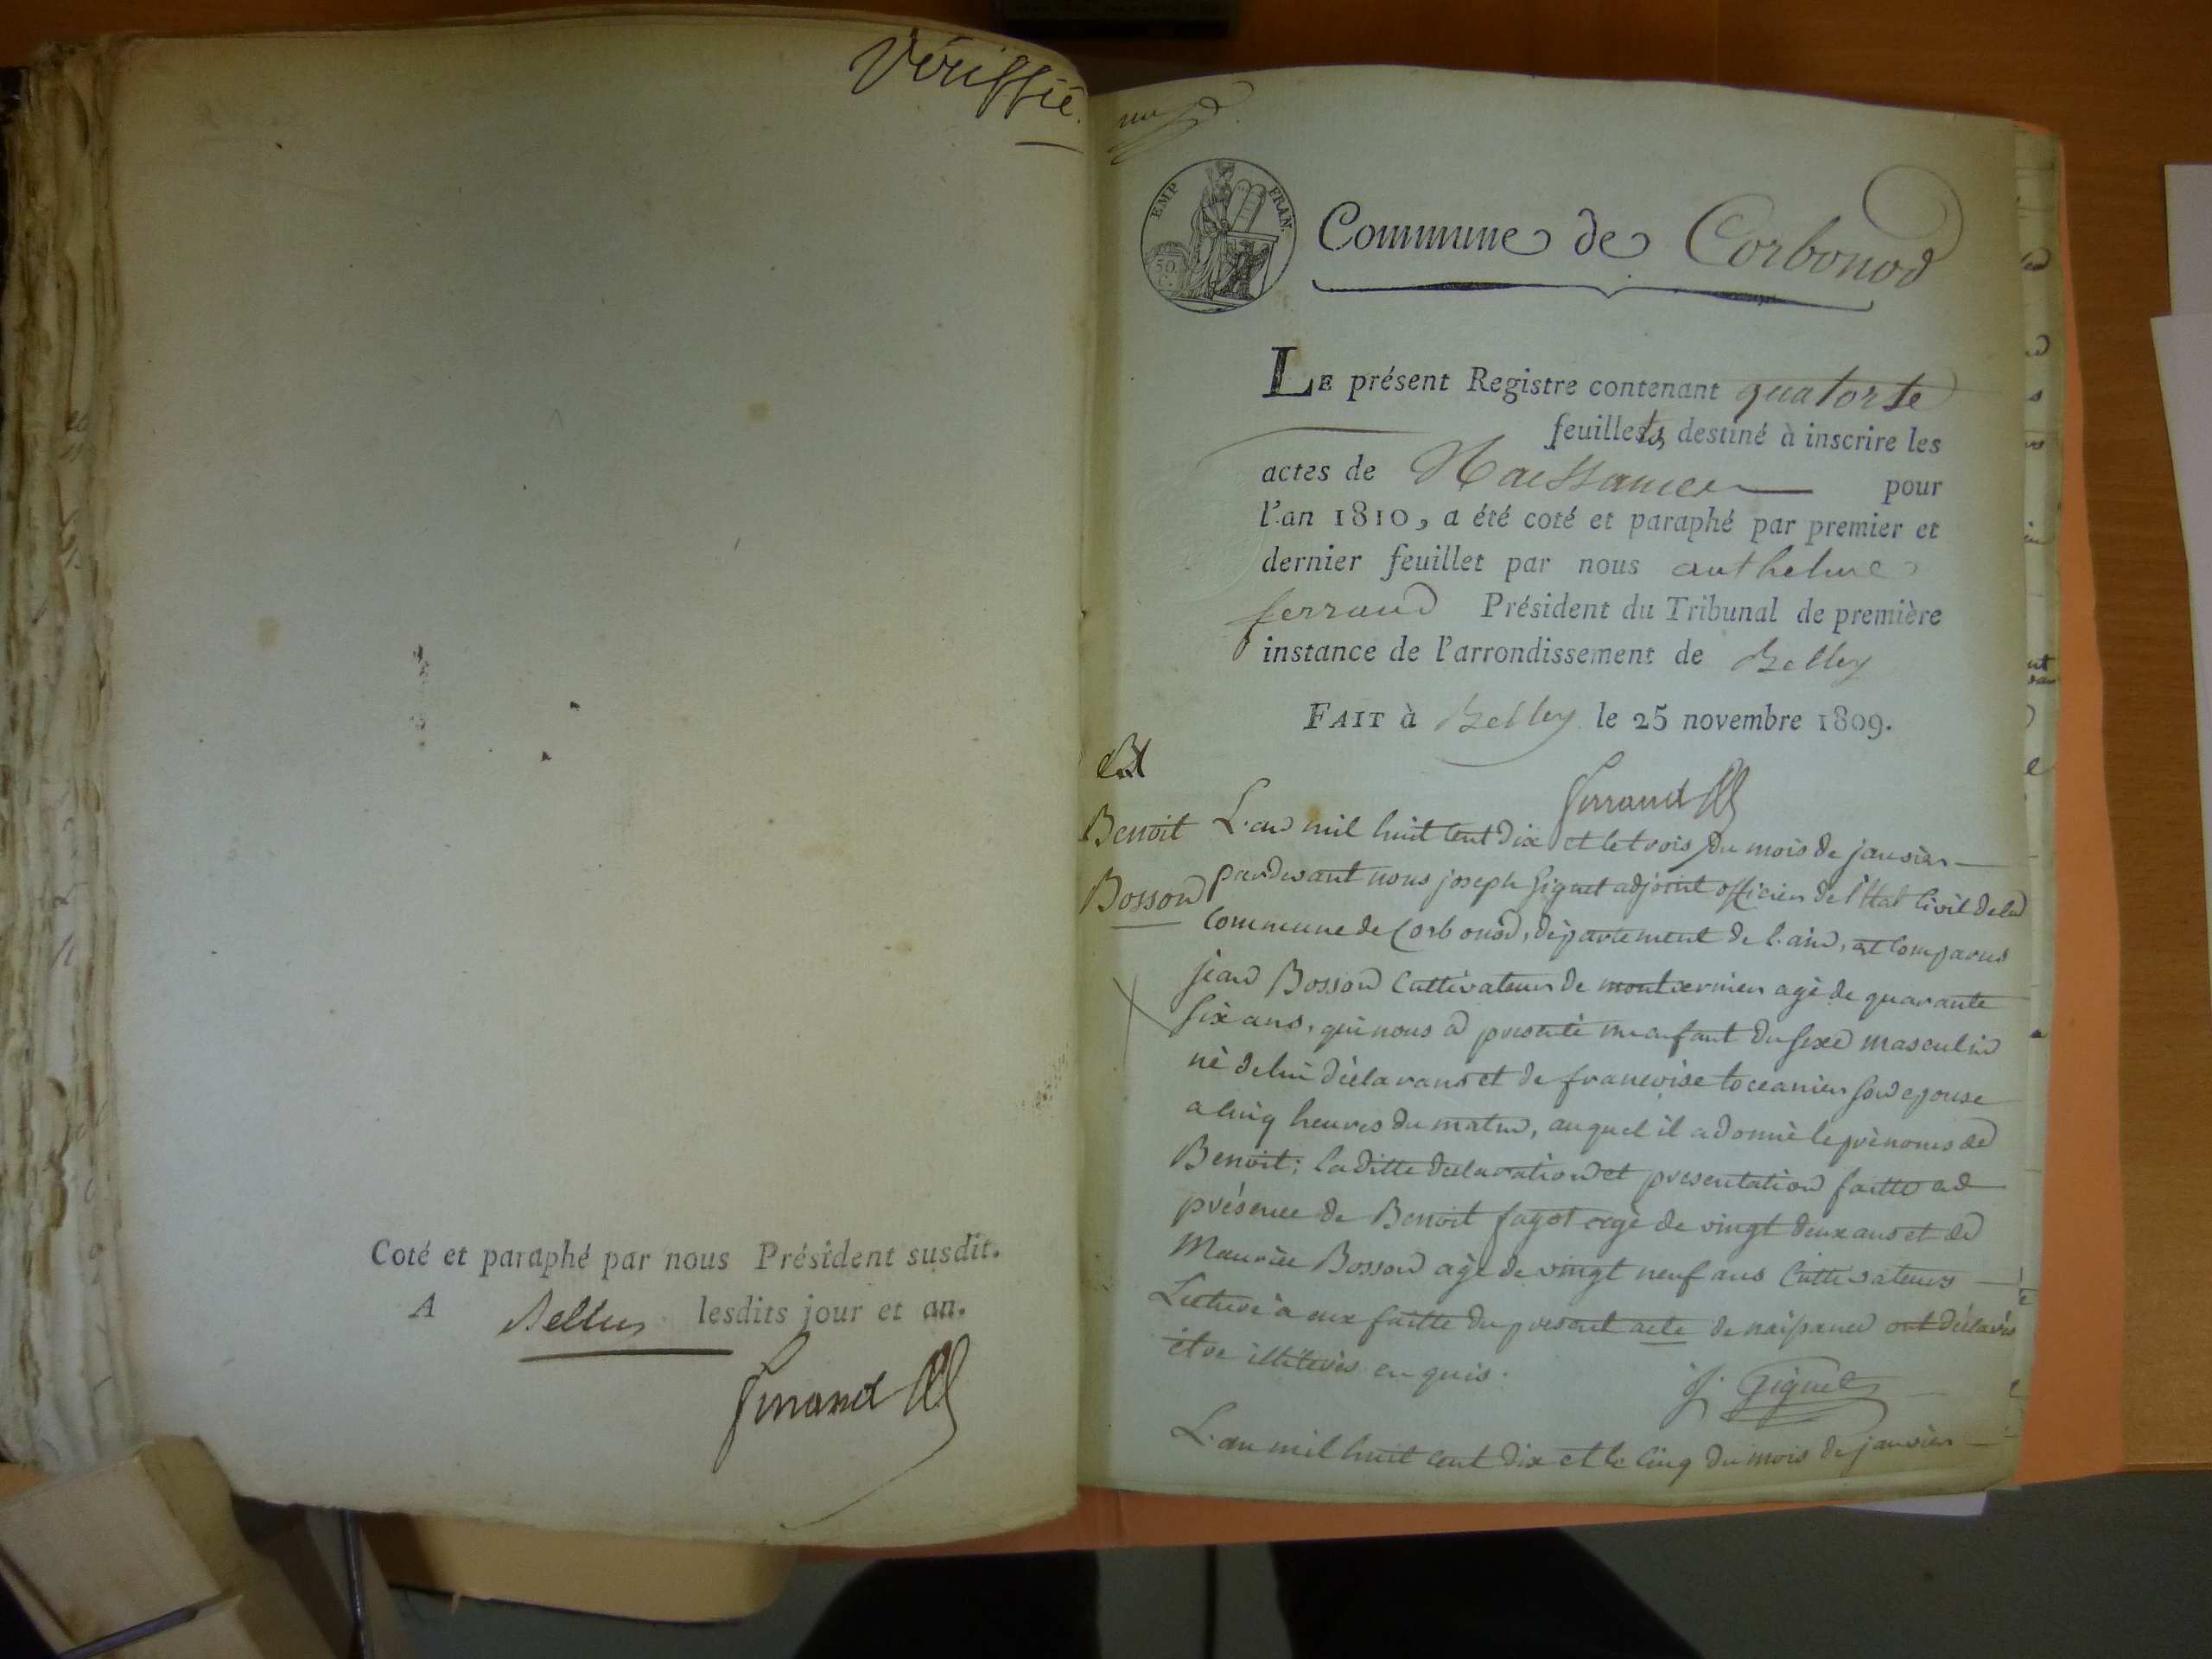 Vériffié.
Coté et paraphé par nous Président susdit.
A Belley lesdits jour et an.
Ferrand
EMP FRAN.
50. C.
Commune de Corbonod
LE présent Registre contenant quatorze
feuillets, destiné à inscrire les
actes de Naissances pour
l'an 1810, a été coté et paraphé par premier et
dernier feuillet par nous anthelme
ferrand Président du Tribunal de première
instance de l'arrondissement de Belley
FAIT à Belley le 25 novembre 1809.
Ferrand
Benoit
Bosson
L'an mil huit cent dix et le trois du mois de janvier
pardevant nous joseph Giguet adjoint officier de l'état Civil de la
Commune de Corbonod, département de l'ain, est Comparus
jean Bosson Cultivateur de agé de quarante
six ans, qui nous a presenté un enfant du sexe masculin
né de lui déclarant et de francoise son epouse
a cinq heures du matin, auquel il a donné le prénoms de
Benoit; la ditte declaration et presentation faitte en
présence de Benoit fagot agé de vingt deux ans et de
Maurice Bosson agé de vingt neuf ans Cultivateurs
Lecture à eux faitte du present acte de naissance ont déclarés
être illiterés enquis.
J. Giguet
L'an mil huit cent dix et le cinq du mois de janvier